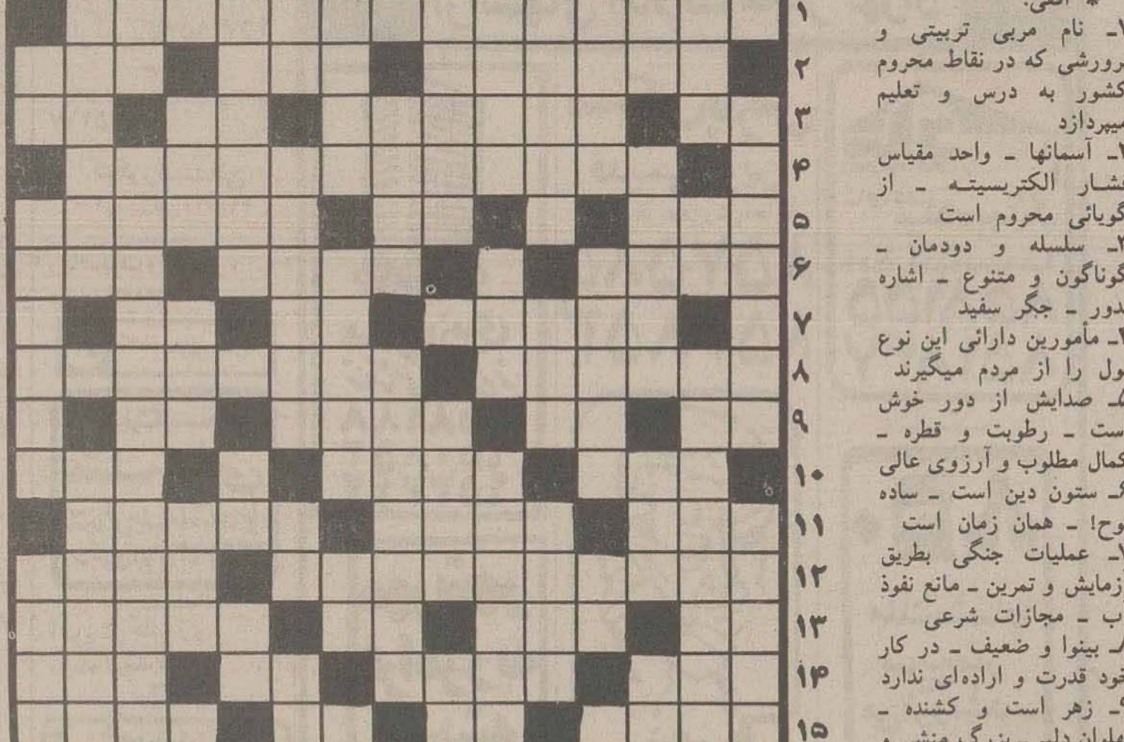 * افقی:
نام مربی تربیتی و
که در نقاط محروم
کشور به درس و تعلیم
میپردازد
آسمانها ـ واحد مقیاس
الکتریسیته ـ از
گویائی محروم است
سلسله و دودمان ـ
گوناگون و متنوع ـ اشاره
بدور ـ جگر سفید
مأمورین دارائی این نوع
را از مردم میگیرند
صدایش از دور خوش
است ـ رطوبت و قطره ـ
کمال مطلوب و آرزوی عالی
ستون دین است ـ ساده
لوح! ـ همان زمان است
عملیات جنگی بطریق
آزمایش و تمرین ـ مانع نفوذ
آب ـ مجازات شرعی
بینوا و ضعیف ـ در کار
خود قدرت و اراده‌ای ندارد
زهر است و کشنده ـ
۱
۲
۳
۴
۵
۶
۷
۸
۹
۱۰
۱۱
۱۲
۱۳
۱۴
۱۵